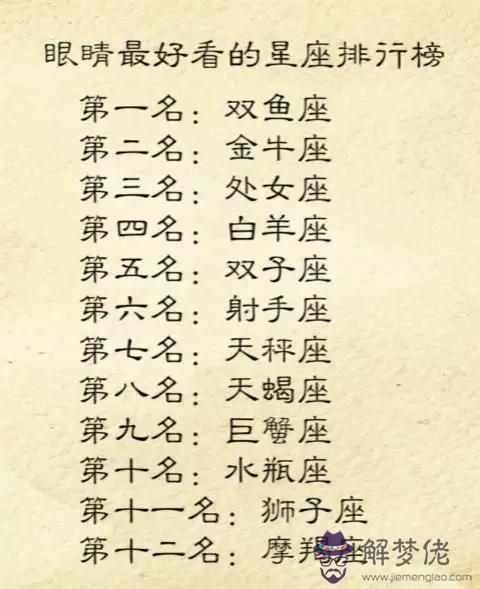 眼睛最好看的星座排行榜
第一名：双鱼座
第二名：金牛座
第三名：处女座
第四名：白羊座
第五名：双子座
第六名：射手座
第七名：天秤座
第八名：天蝎座
第九名：巨蟹座
第十名：水瓶座
第十一名：狮子座
第十二名：摩羯座
解梦佬
www.jiemenglao.com